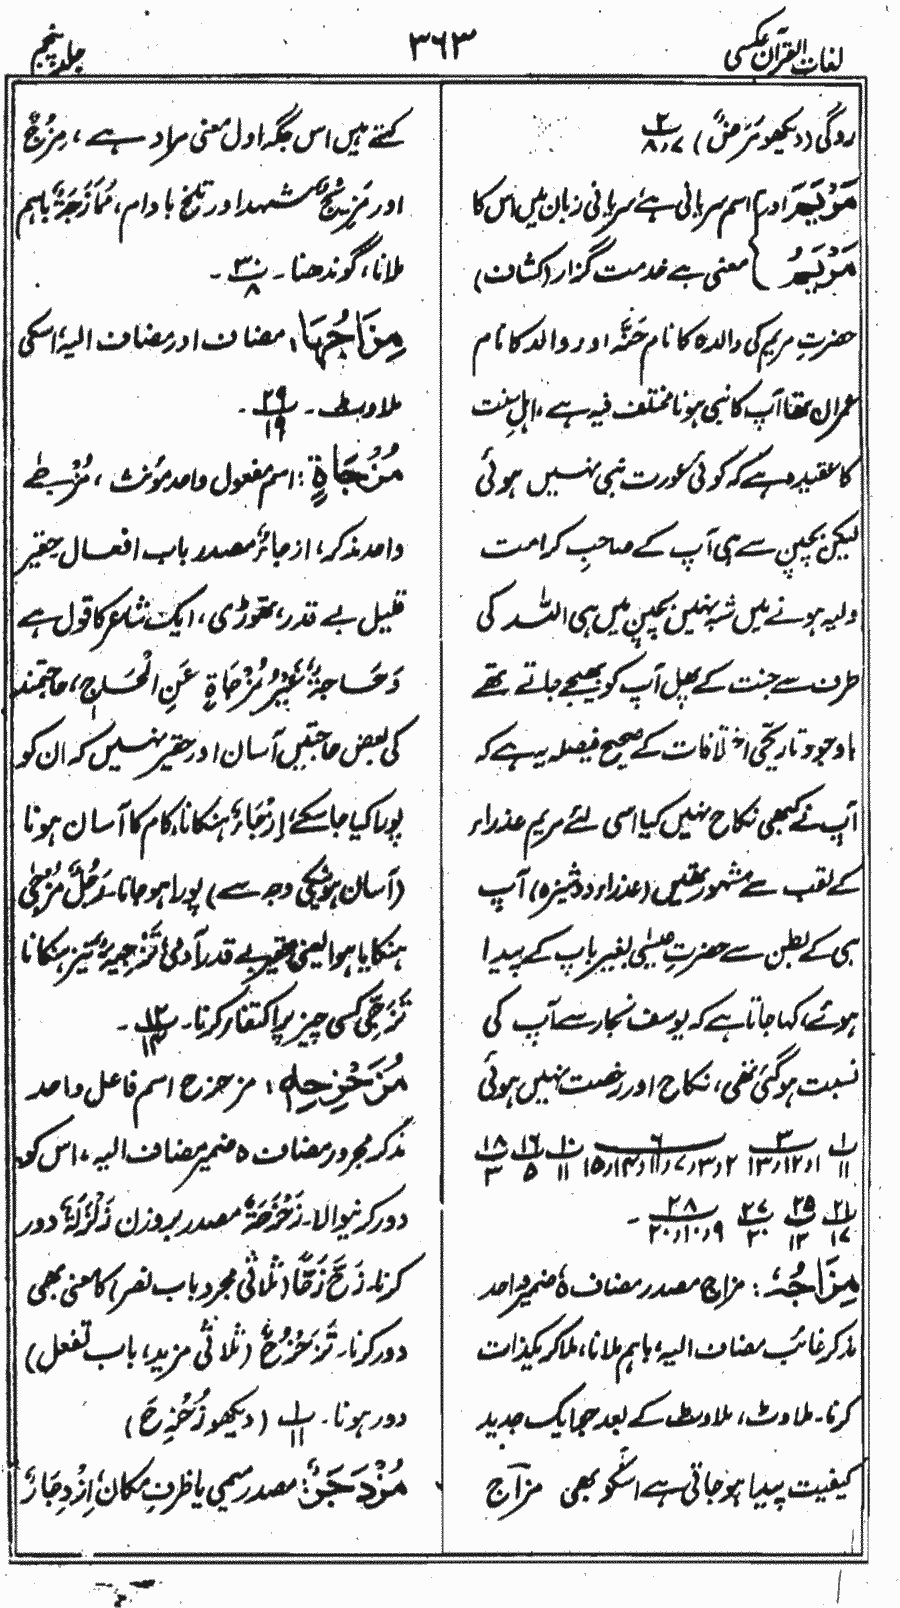 لغات القرآن عکسی
۳۶۳
جلد پنجم
روگی (دیکھو مَرَضٌ) ۲/۸،۷
مَرْیَمَ اور } اسم سریانی ہے سریانی زبان میں اس کا
مَرْیَمُ } معنی ہے خدمت گزار (کشاف)
حضرتِ مریم کی والدہ کا نام حَنَّہ اور والد کا نام
عمران تھا آپ کا نبی ہونا مختلف فیہ ہے، اہلِ سنت
کا عقیدہ ہے کہ کوئی عورت نبی نہیں ہوئی
لیکن بچپن سے ہی آپ کے صاحبِ کرامت
ولیہ ہونے میں شبہ نہیں بچپن میں ہی اللہ کی
طرف سے جنت کے پھل آپ کو بھیجے جاتے تھے
باوجود تاریخی اختلافات کے صحیح فیصلہ یہ ہے کہ
آپ نے کبھی نکاح نہیں کیا اسی لئے مریم عذراء
کے لقب سے مشہور تھیں (عذراء دوشیزہ) آپ
ہی کے بطن سے حضرتِ عیسٰی بغیر باپ کے پیدا
ہوئے، کہا جاتا ہے کہ یوسف نجار سے آپ کی
نسبت ہوگئی تھی، نکاح اور رخصت نہیں ہوئی
۱/۱۱ ۳/۱۳،۱۲،۱ ۶/۱۵،۱۴،۱۱،۷،۳،۲ ۱۰/۱۱ ۱۶/۵ ۱۸/۳
۲۱/۱۷ ۲۵/۱۲ ۲۷/۲۰ ۲۸/۲۰،۱۰،۹ ۔
مِزَاجُہٗ : مزاج مصدر مضاف ہٗ ضمیر واحد
مذکر غائب مضاف الیہ، باہم ملانا، ملا کر یکذات
کرنا۔ ملاوٹ، ملاوٹ کے بعد جو ایک جدید
کیفیت پیدا ہو جاتی ہے اسکو بھی مزاج
کہتے ہیں اس جگہ اول معنی مراد ہے، مِزْجٌ
اور مَزِیْجٌ شہد اور تلخ بادام، مُمَازَجَۃٌ باہم
ملانا، گوندھنا۔ ۳۰/۸ ۔
مِزَاجُہَا، مضاف اور مضاف الیہ، اسکی
ملاوٹ۔ ۲۹/۱۹ ۔
مُزْجَاۃٍ : اسم مفعول واحد مؤنث، مُزْجٰے
واحد مذکر، ازجاءٌ مصدر باب افعال حقیر
قلیل بے قدر، تھوڑی، ایک شاعر کا قول ہے
وَحَاجَۃٌ غَیْرُ مُزْجَاۃٍ عَنِ الْحَاجِ، حاجتمند
کی بعض حاجتیں آسان اور حقیر نہیں کہ ان کو
پورا کیا جا سکے، اِزْجَاءٌ ہنکانا، کام کا آسان ہونا
(آسان ہونیکی وجہ سے) پورا ہو جانا۔ رَجُلٌ مُزْجًی
ہنکایا ہوا یعنی حقیر بے قدر آدمی تَزْجِیَۃٌ تیز ہنکانا
تَزَجِّی کسی چیز پر اکتفاء کرنا۔ ۱۳/۴ ۔
مُزَحْزِحِہٖ، مزحزح اسم فاعل واحد
مذکر مجرور مضاف ہ ضمیر مضاف الیہ، اس کو
دور کرنیوالا۔ زَحْزَحَۃٌ مصدر بروزن زَلْزَلَۃٌ دور
کرنا۔ زَحَّ زَحًّا (ثلاثی مجرد باب نصر) کا معنی بھی
دور کرنا۔ تَزَحْزُحٌ (ثلاثی مزید، باب تفعل)
دور ہونا۔ ۱/۱۱ (دیکھو زُحْزِحَ)
مُزْدَجَرٌ: مصدر میمی یا ظرفِ مکان، اِزْدِجَارٌ